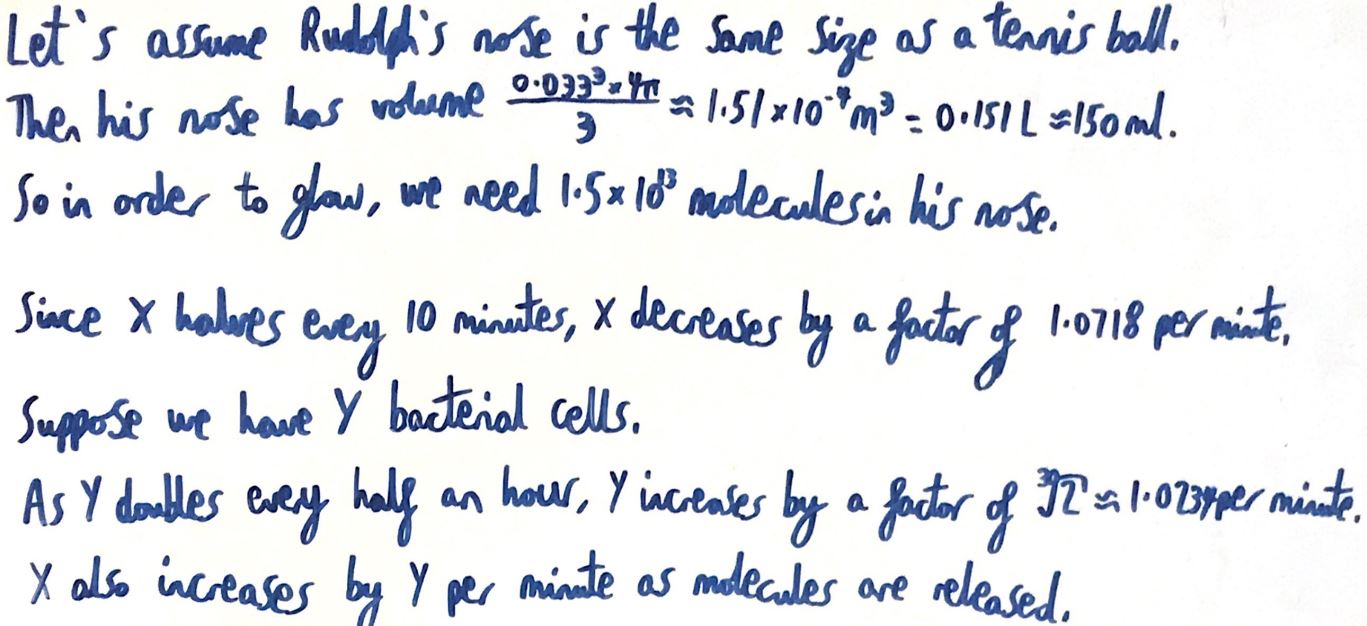 Let's assume Rudolph's nose is the same size as a tennis ball.
Then his nose has volume (0.033³ × 4π)/3 ≈ 1.51 × 10⁻⁴ m³ = 0.151 L ≈ 150 ml.
So in order to glow, we need 1.5 × 10¹³ molecules in his nose.
Since X halves every 10 minutes, X decreases by a factor of 1.0718 per minute.
Suppose we have Y bacterial cells.
As Y doubles every half an hour, Y increases by a factor of ³⁰√2 ≈ 1.0234 per minute.
X also increases by Y per minute as molecules are released.